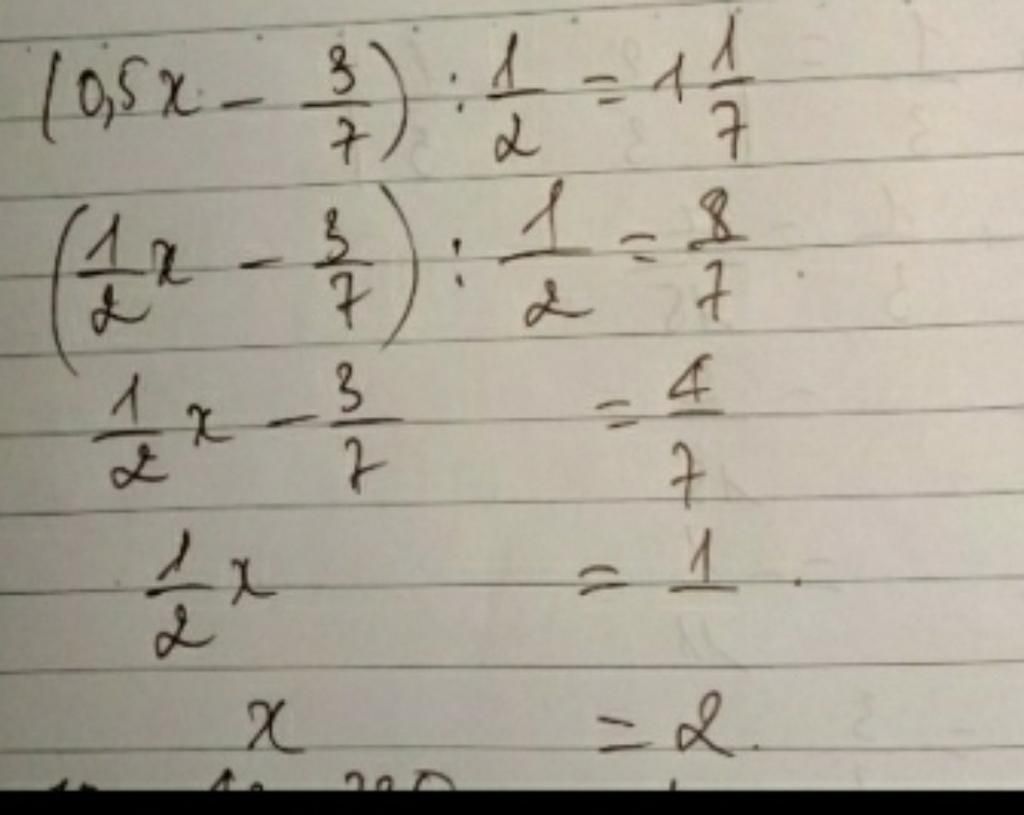 (0,5x - 3/7) : 1/2 = 1 1/7
(1/2 x - 3/7) : 1/2 = 8/7
1/2 x - 3/7 = 4/7
1/2 x = 1
x = 2.